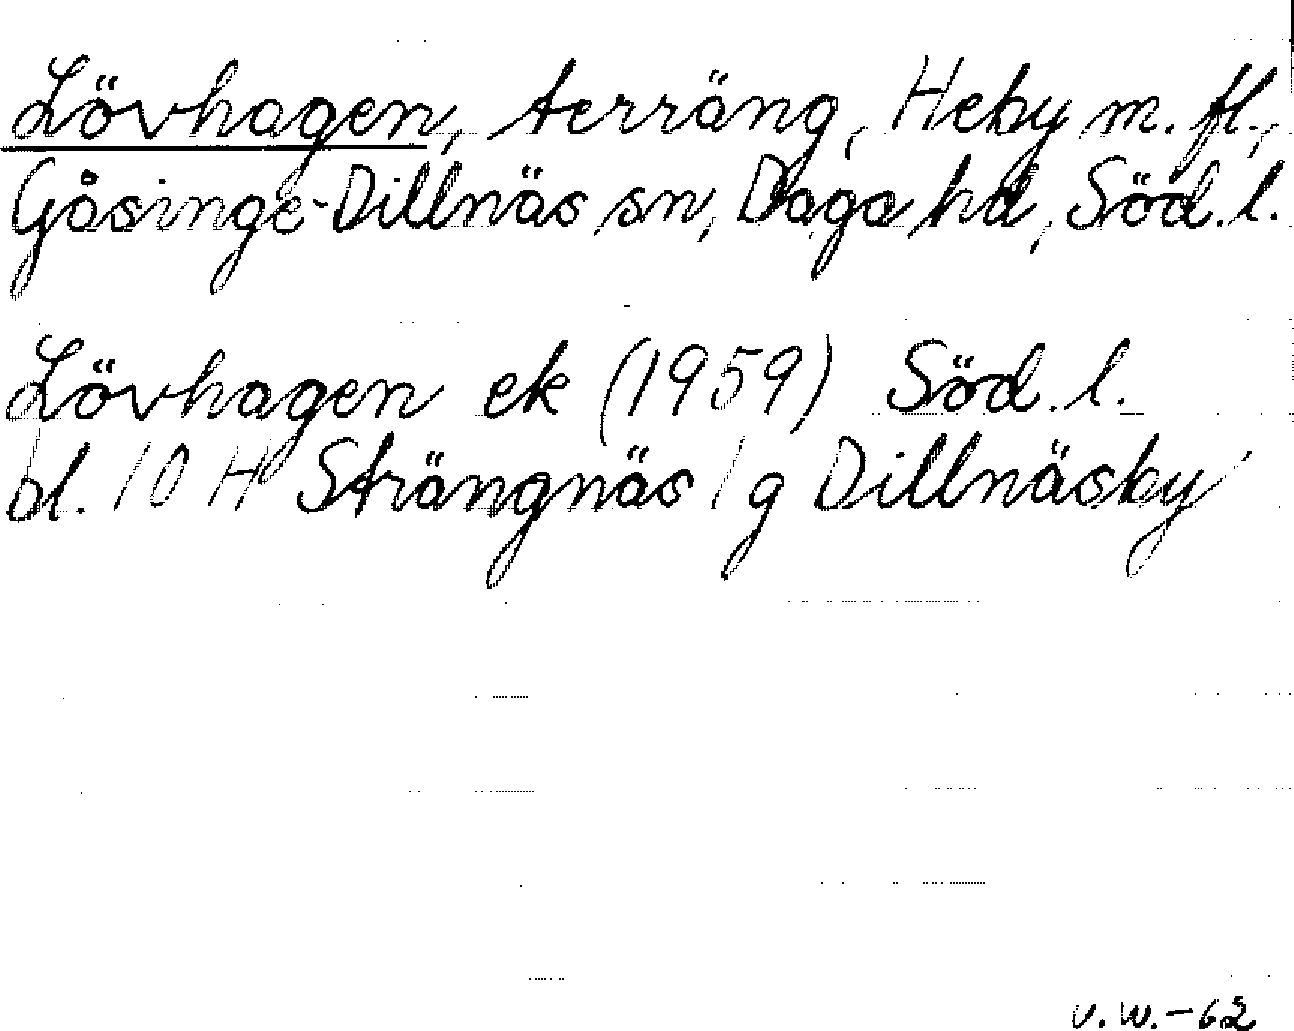 Lövhagen, terräng, Heby m. fl.,
Gåsinge-Dillnäs sn, Daga hd, Söd. l.
Lövhagen ek (1959) Söd. l.
bl. 10 H Strängnäs 1 g Dillnäsby
v. w. - 62